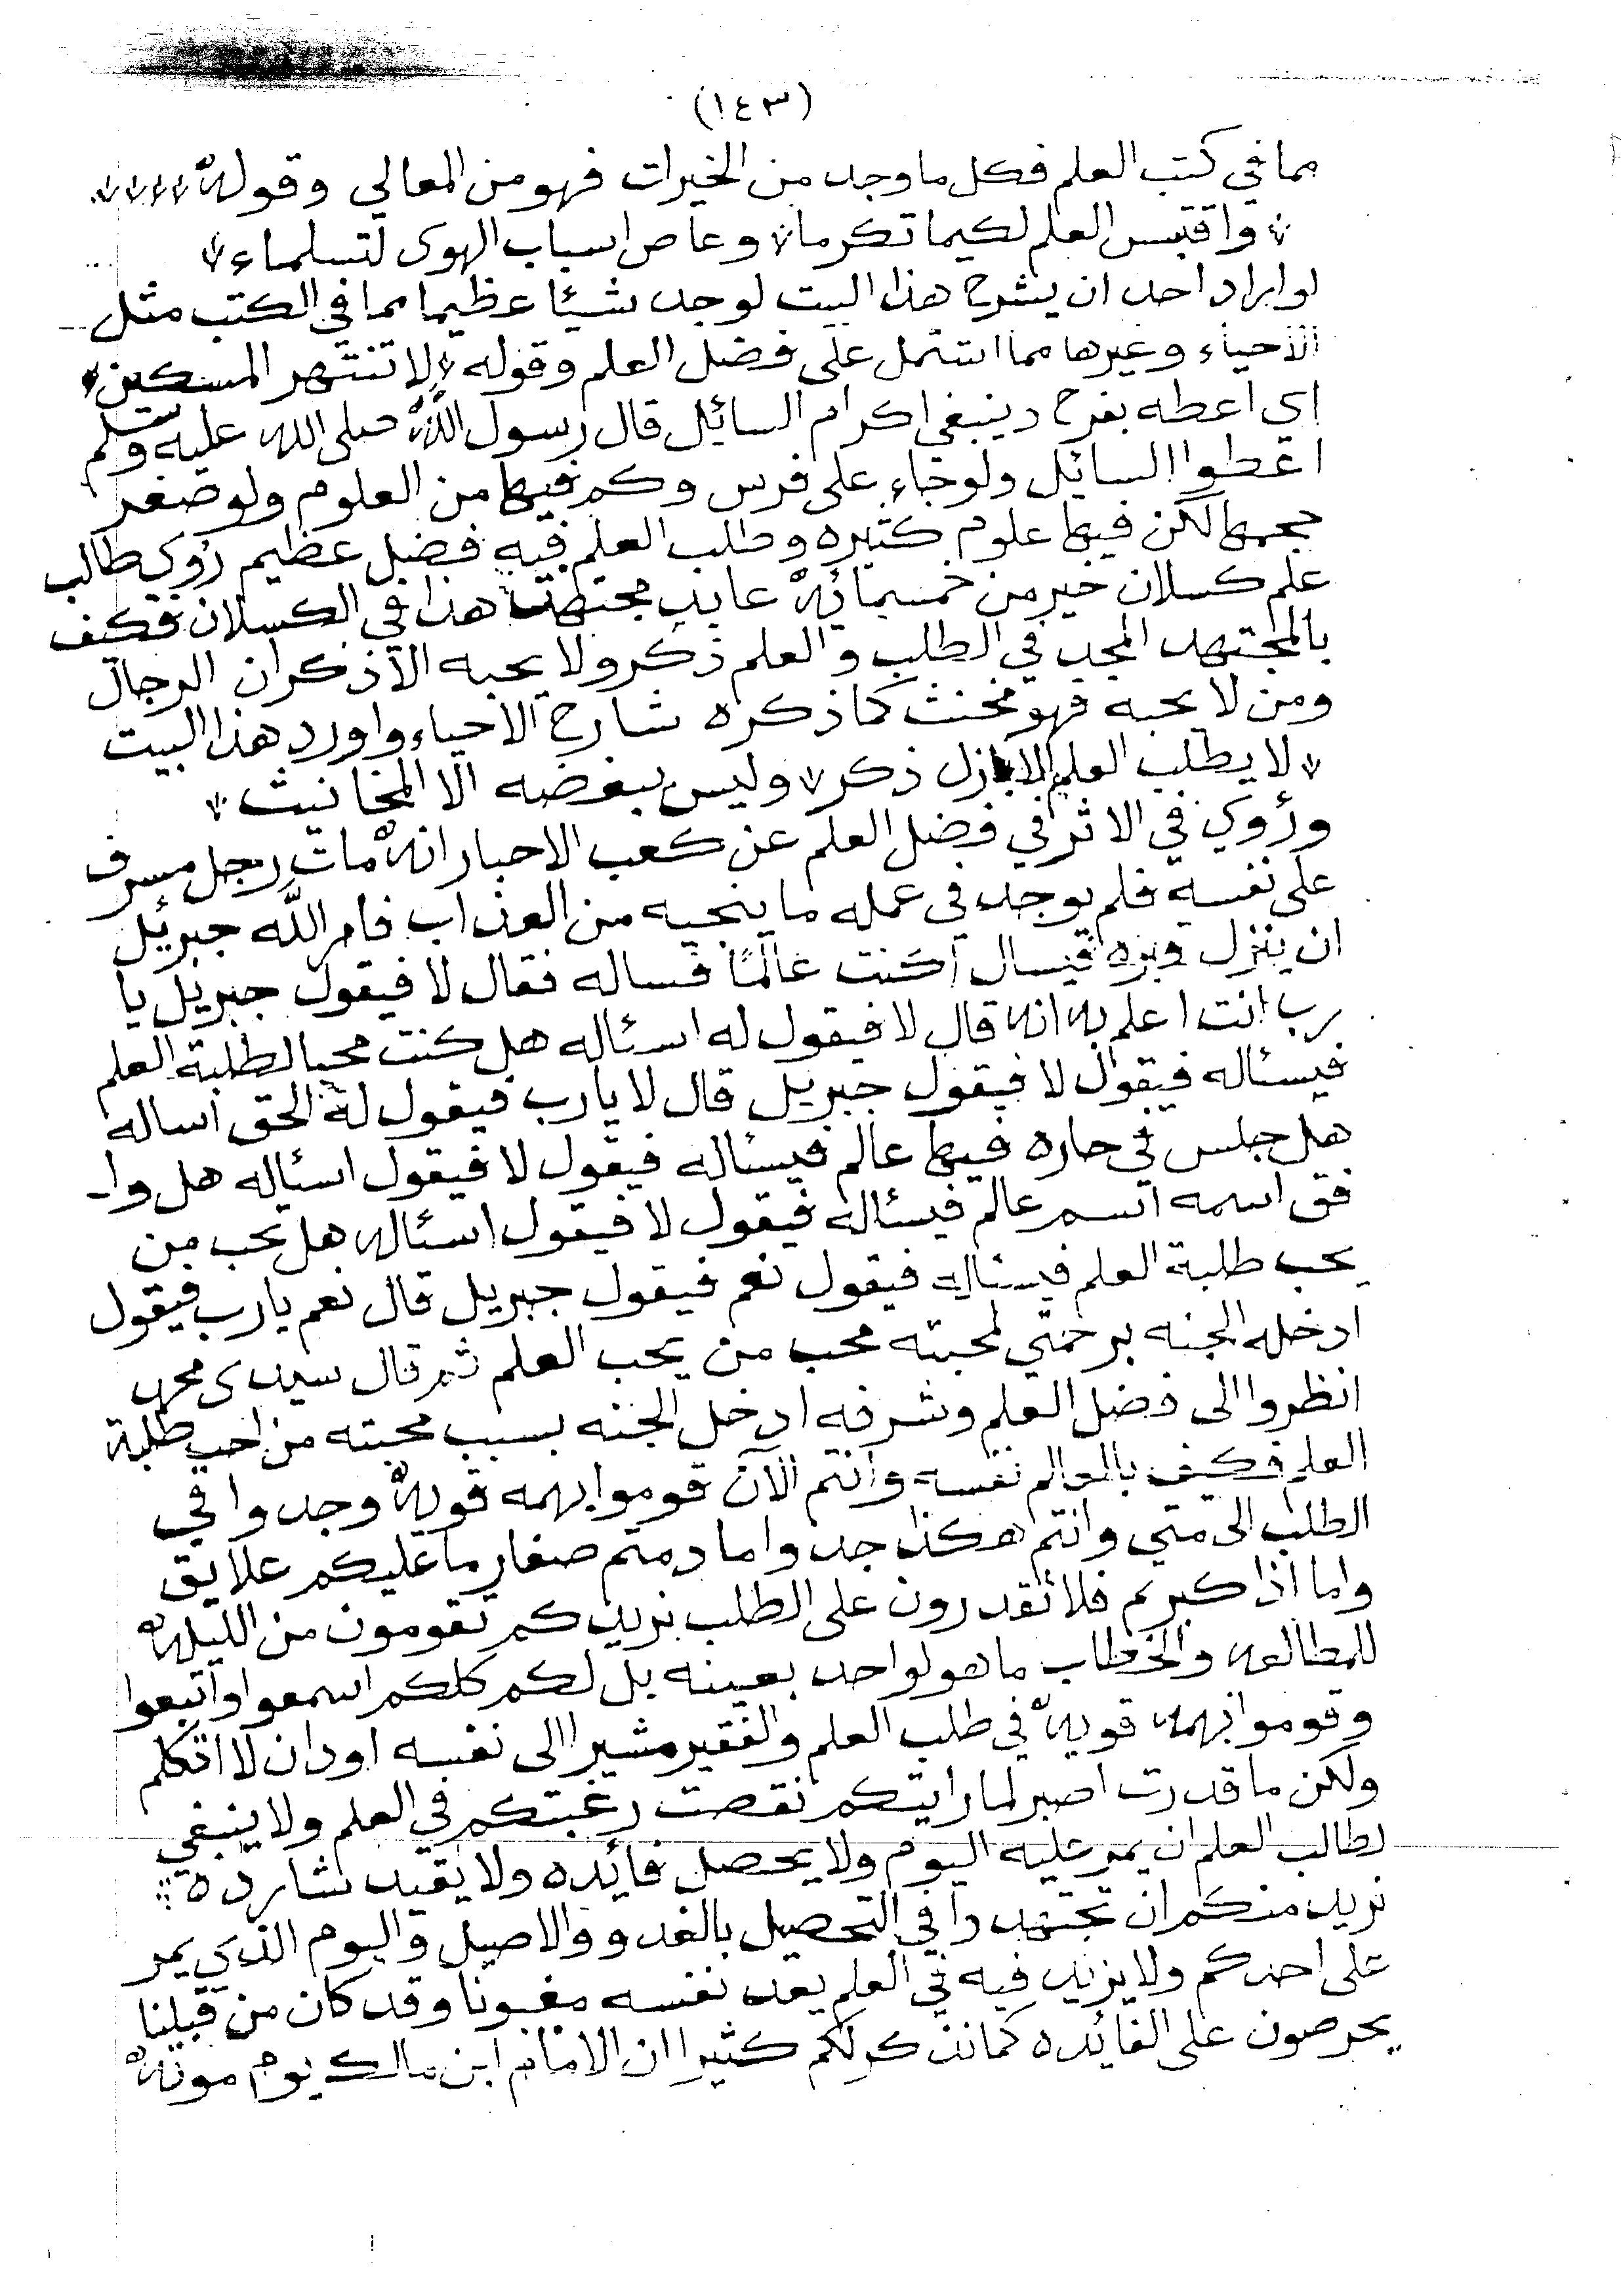 (١٤٣)
مما في كتب العلم فكل ما وجد من الخيرات فهو من المعالي وقوله
واقتبس العلم لكيما تكرما وعاص اسباب الهوى لتسلماء
لو اراد احد ان يشرح هذا البيت لوجد شيئا عظيما مما في الكتب مثل
الاحياء وغيرها مما اشتمل على فضل العلم وقوله لا تنتهر المسكين
اي اعطه بفرح وينبغي اكرام السائل قال رسول الله صلى الله عليه وسلم
اعطوا السائل ولو جاء على فرس وكم فيها من العلوم ولو صغر
حجمها لكن فيها علوم كثيره وطلب العلم فيه فضل عظيم رُوي طالب
علم كسلان خير من خمسمائة عابد مجتهد هذا في الكسلان فكيف
بالمجتهد المجد في الطلب والعلم ذكر ولا يحبه الا ذكران الرجال
ومن لا يحبه فهو مخنث كما ذكره شارح الاحياء واورد هذا البيت
لا يطلب العلم الا بازل ذكر وليس يبغضه الا المخانيث
ورُوي في الاثر في فضل العلم عن كعب الاحبار انه مات رجل مسرف
على نفسه فلم يوجد في عمله ما ينجيه من العذاب فامر الله جبرئيل
ان ينزل فيسال اكنت عالمًا فساله فقال لا فيقول جبريل يا
رب انت اعلم به انه قال لا فيقول له اسئاله هل كنت محبا لطلبة العلم
فيسئاله فيقول لا فيقول جبريل قال لا يا رب فيقول له الحق اساله
هل جلس في حاره فيها عالم فيسئاله فيقول لا فيقول اسئاله هل وا-
فق اسمه اسم عالم فيسئاله فيقول لا فيقول اسئاله هل يحب من
يحب طلبة العلم فيسئاله فيقول نعم فيقول جبريل قال نعم يا رب فيقول
ادخله الجنه برحمتي لمحبته محب من يحب العلم ثم قال سيدى محمد
انظروا الى فضل العلم وشرفه ادخل الجنه بسبب محبته من احب طلبة
العلم فكيف بالعالم نفسه وانتم الآن قوموا بهمه قويه وجدوا في
الطلب الى متي وانتم هكذا جدوا ما دمتم صغار ما عليكم علايق
واما اذا كبرتم فلا تقدرون على الطلب نريدكم تقومون من الليله
للمطالعه والخطاب ما هو لواحد بعينه بل لكم كلكم اسمعوا واتبعوا
وقوموا بهمه قويه في طلب العلم والفقير مشيرا الى نفسه اود ان لا اتكلم
ولكن ما قدرت اصبر لما رايتكم نقصت رغبتكم في العلم ولا ينبغي
لطالب العلم ان يمر عليه اليوم ولا يحصل فائده ولا يقيد شارده
نريد منكم ان تجتهدوا في التحصيل بالغدو والاصيل واليوم الذي يمر
على احدكم ولا يزيد فيه في العلم يعد نفسه مغبونا وقد كان من قبلنا
يحرصون على الفائده كما نذكر لكم كثيرا ان الامام ابن مالك يوم موته